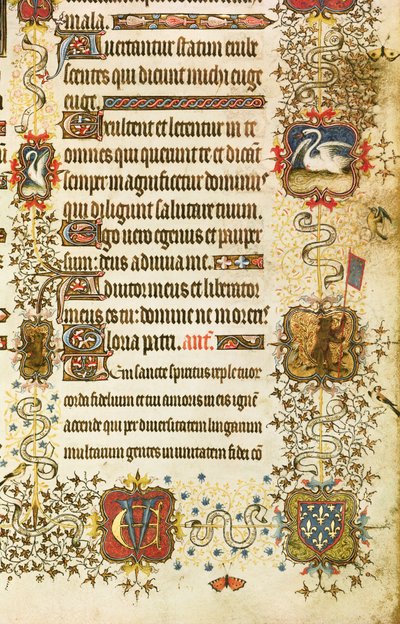 mala. Auertantur statim erube
scentes qui dicunt michi euge
euge.
Exultent et letentur in te
omnes qui querunt te et dicāt
semper magnificetur dominus
qui diligunt salutare tuum.
Ego uero egenus et pauper
sum: deus adiuua me.
Adiutor meus et liberator
meus es tu: domine ne moreris
Gloria patri. ant.
Veni sancte spiritus reple tuor
corda fidelium et tui amoris in eis ignē
accende qui per diuersitatem linguarum
multarum gentes in unitatem fidei cō
VE